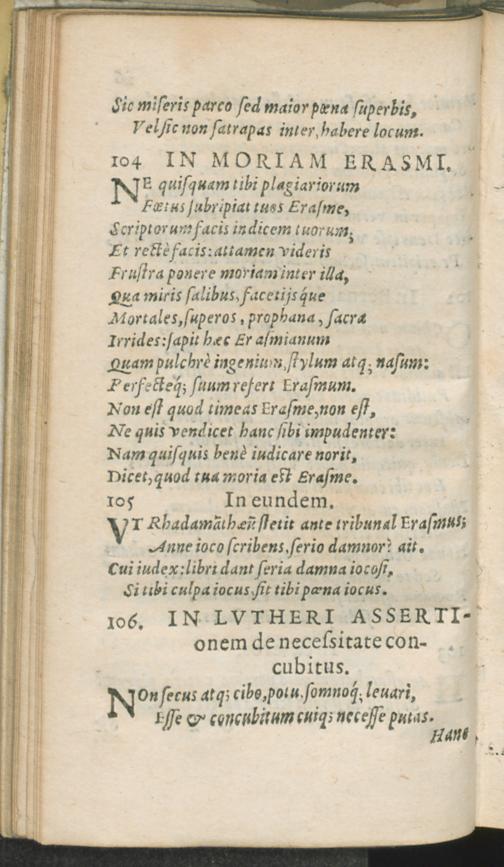 Sic miseris parco sed maior pœna superbis,
Vel sic non satrapas inter, habere locum.
104 IN MORIAM ERASMI.
NE quisquam tibi plagiariorum
Fœtus subripiat tuos Erasme,
Scriptorum facis indicem tuorum;
Et rectè facis: attamen videris
Frustra ponere moriam inter illa,
Qua miris salibus, facetijsq́ue
Mortales, superos, prophana, sacra
Irrides: sapit hæc Erasmianum
Quam pulchrè ingenium, stylum atq; nasum:
Perfecteq́; suum refert Erasmum.
Non est quod timeas Erasme, non est,
Ne quis vendicet hanc sibi impudenter:
Nam quisquis benè iudicare norit,
Dicet, quod tua moria est Erasme.
105 In eundem.
VT Rhadamãthæũ stetit ante tribunal Erasmus;
Anne ioco scribens, serio damnor? ait.
Cui iudex: libri dant seria damna iocosi,
Si tibi culpa iocus, sit tibi pœna iocus.
106. IN LVTHERI ASSERTI-
onem de necessitate con-
cubitus.
NOn secus atq; cibo, potu, somnoq́; leuari,
Esse & concubitum cuiq; necesse putas.
Hanc